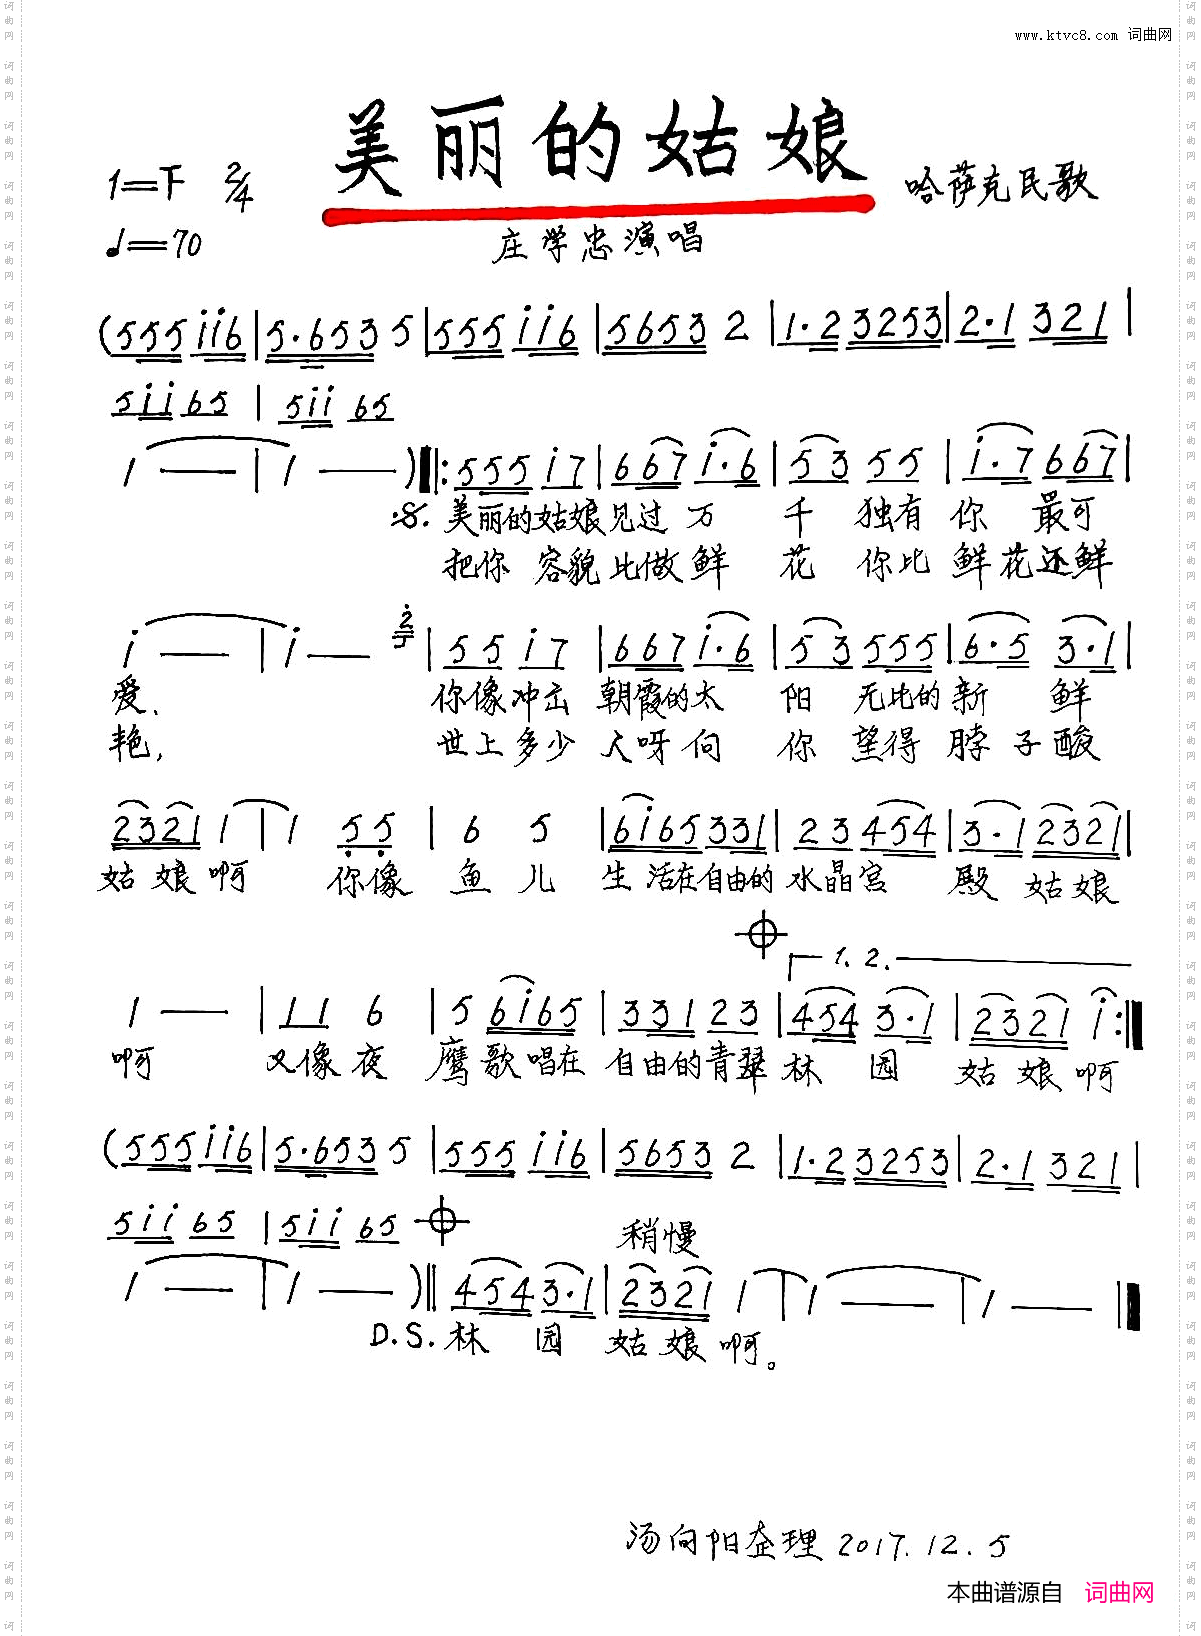 www.ktvc8.com 词曲网
美丽的姑娘
1=F 2/4
哈萨克民歌
♩=70
庄学忠演唱
(555 i i 6 | 5·653 5 | 555 i i 6 | 5653 2 | 1·2 3253 | 2·1 321 |
5 i i 65 | 5 i i 65
1 — | 1 — ) ‖: 555 i 7 | 667 i·6 | 53 55 | i·7 667 |
:S. 美丽的姑娘见过万千独有你最可
把你容貌比做鲜花你比鲜花还鲜
i — | i — 2 | 55 i 7 | 667 i·6 | 53 555 | 6·5 3·1 |
爱、你像冲击朝霞的太阳无比的新鲜
艳,世上多少人呀向你望得脖子酸
2321 1 | 1 55 | 6 5 | 6 i 65 331 | 23 454 | 3·1 2321 |
姑娘啊你像鱼儿生活在自由的水晶宫殿姑娘
1. 2.
1 — | 11 6 | 5 6 i 65 | 331 23 | 454 3·1 | 2321 i :‖
啊又像夜鹰歌唱在自由的青翠林园姑娘啊
(555 i i 6 | 5·653 5 | 555 i i 6 | 5653 2 | 1·2 3253 | 2·1 321 |
5 i i 65 | 5 i i 65
稍慢
1 — | 1 — ) ‖ 454 3·1 | 2321 1 | 1 — | 1 — ‖
D.S. 林园姑娘啊。
汤向阳整理 2017.12.5
本曲谱源自 词曲网